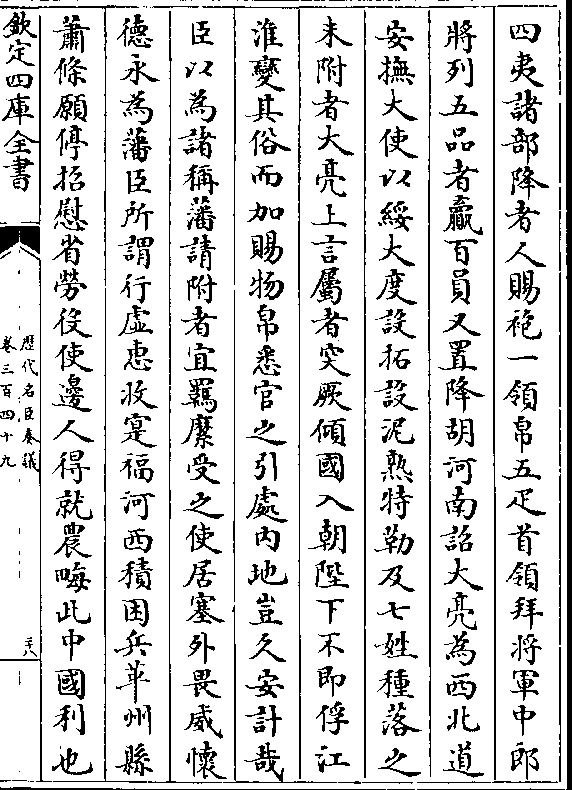 四夷諸部降者人賜袍一領帛五疋首領拜將軍中郎
將列五品者贏百員又置降胡河南詔大亮為西北道
安撫大使以綏大度設拓設泥熟特勒及七姓種落之
未附者大亮上言屬者突厥傾國入朝陛下不即俘江
淮變其俗而加賜物帛悉官之引處內地豈久安計哉
臣以為諸稱藩請附者宜羈縻受之使居塞外畏威懷
德永為藩臣所謂行虛惠收寔福河西積困兵革州縣
蕭條願停招慰省勞役使邊人得就農畮此中國利也
欽定四庫全書
歷代名臣奏議
卷三百四十九
二十八